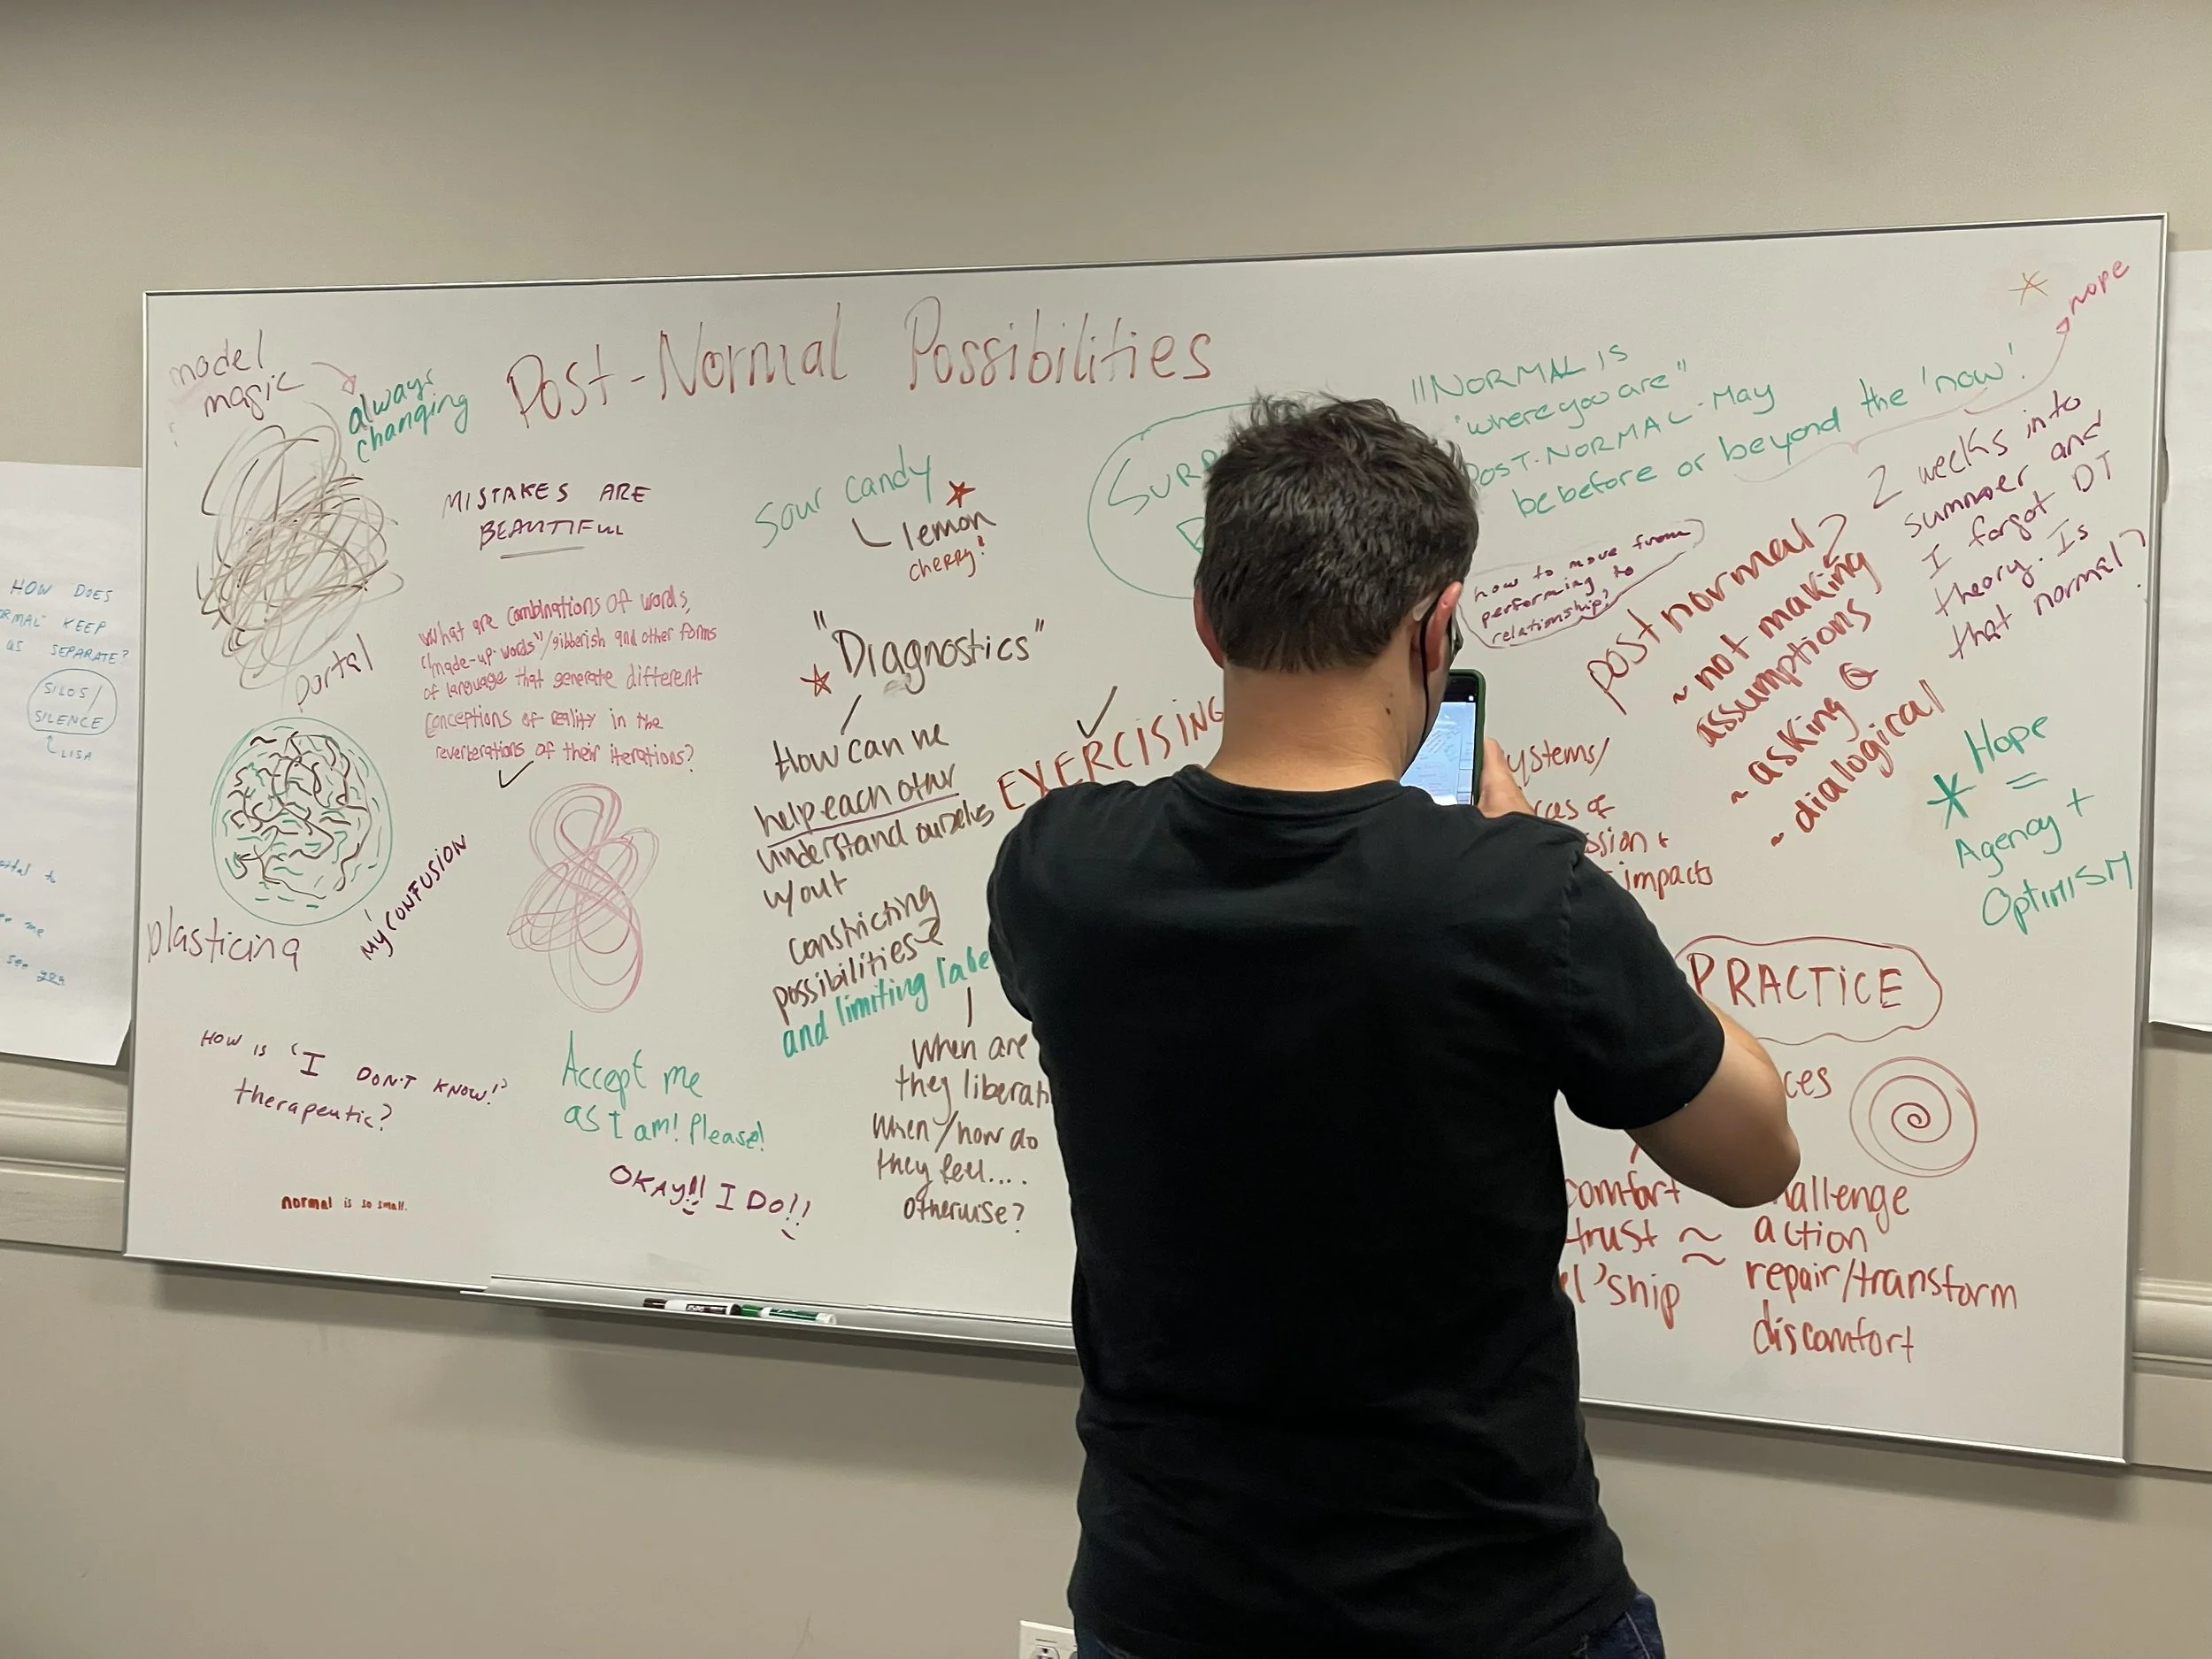 Post-Normal Possibilities
model
magic
always
changing
portal
plasticing
MY CONFUSION
MISTAKES ARE
BEAUTIFUL
What are combinations of words,
"made-up-words"/gibberish and other forms
of language that generate different
conceptions of reality in the
reverterations of their iterations?
HOW IS 'I DON'T KNOW!'
therapeutic?
normal is so small.
Accept me
as I am! Please!
OKAY!!! I DO!!
Sour candy
lemon
cherry!
"Diagnostics"
How can we
help each other
understand ourselves
w/out
constricting
possibilities
and limiting labe
When are
they liberati
When/how do
they feel....
otherwise?
EXERCISING
SURP
"NORMAL IS
"where you are"
POST-NORMAL-May
be before or beyond the 'now'.
nope
how to move from
performing to
relationship?
postnormal?
~ not making
assumptions
~ asking Q
~ dialogical
2 weeks into
summer and
I forgot DT
theory. Is
that normal?
* Hope
=
Agency +
Optimism
ystems/
ces of
ssion +
impacts
PRACTICE
ces
comfort
trust
el'ship
hallenge
action
repair/transform
discomfort
HOW DOES
RMAL" KEEP
AS SEPARATE?
SILOS/
SILENCE
LISA